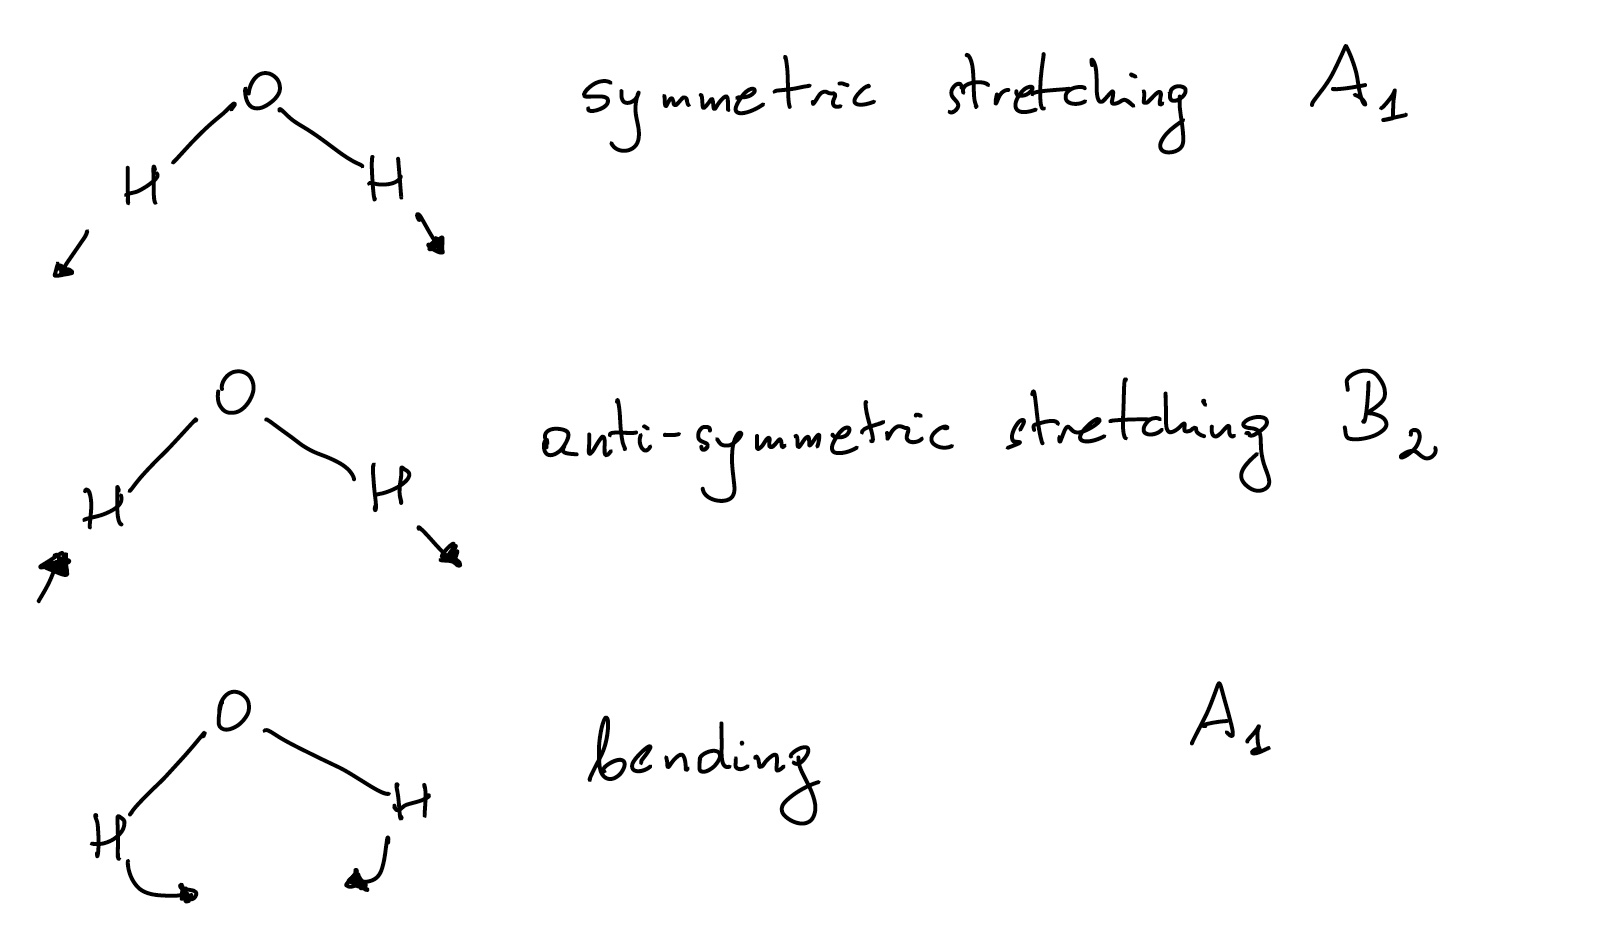 O
H H
symmetric stretching A₁
O
H H
anti-symmetric stretching B₂
O
H H
bending A₁